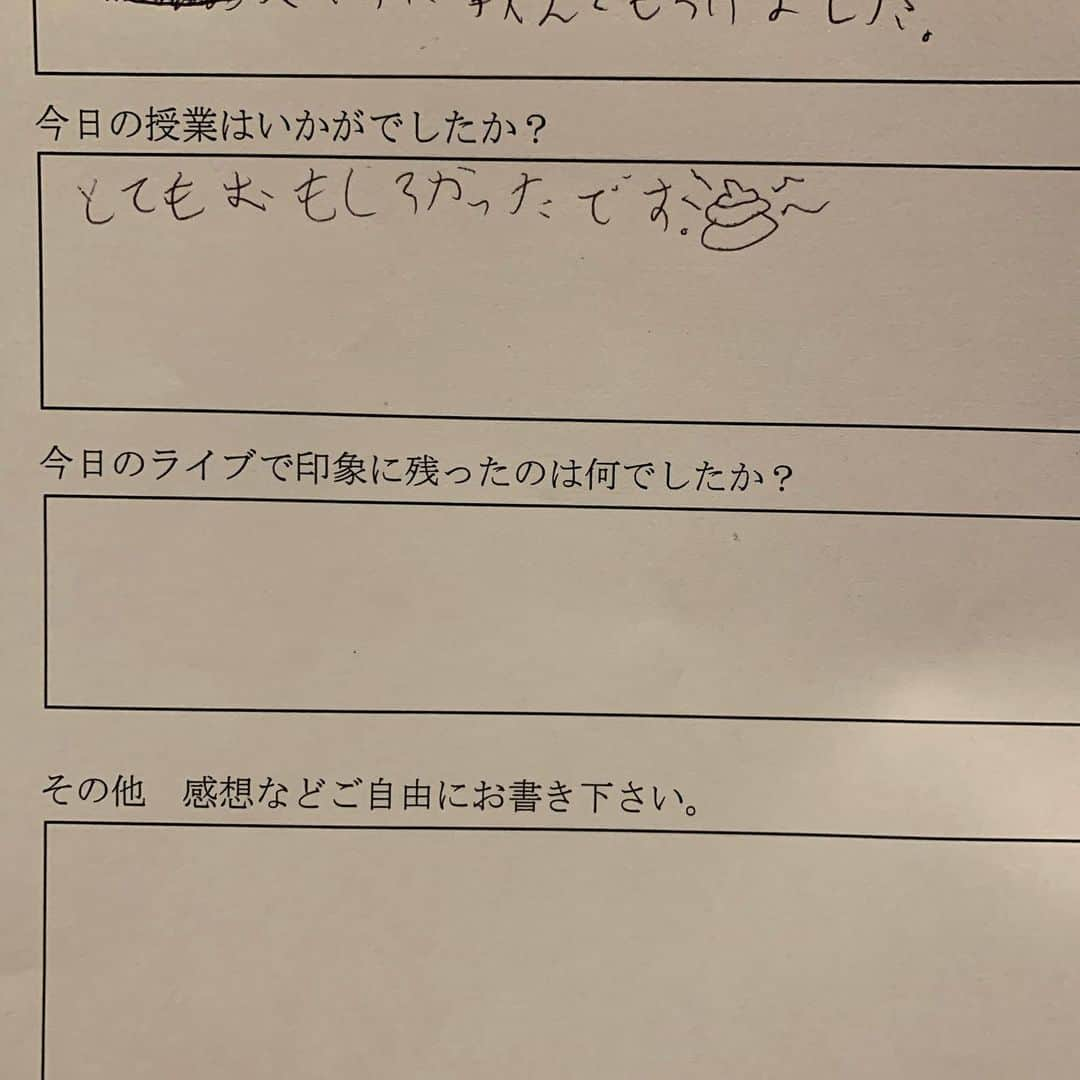 ましした。
今日の授業はいかがでしたか？
とてもおもしろかったです。
今日のライブで印象に残ったのは何でしたか？
その他　感想などご自由にお書き下さい。